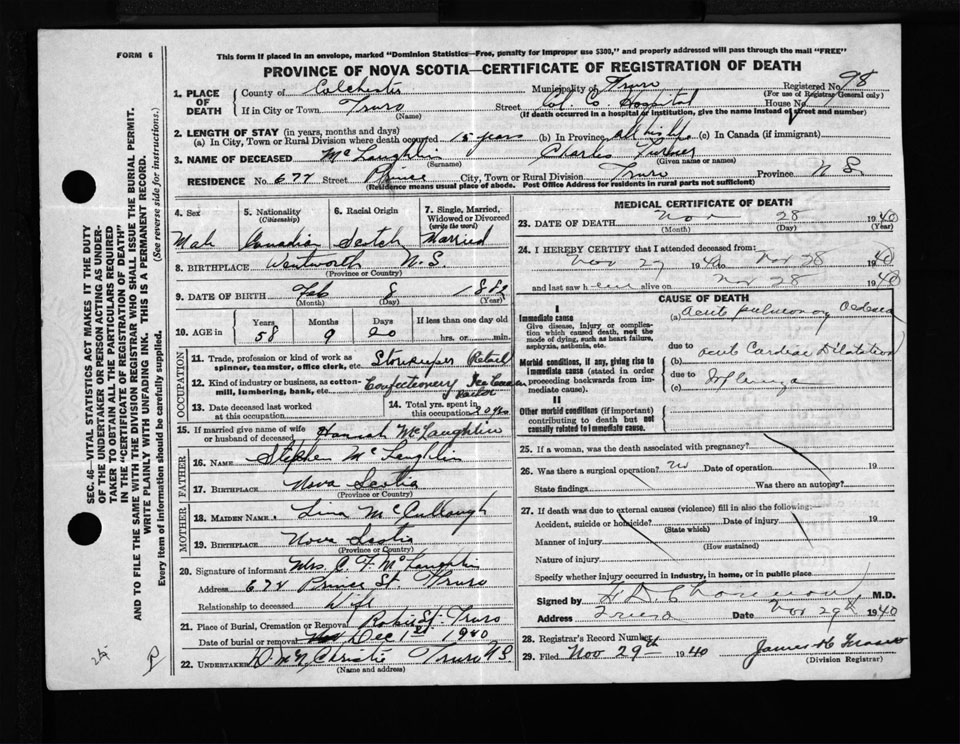 FORM 6
This form if placed in an envelope, marked "Dominion Statistics—Free, penalty for improper use $300," and properly addressed will pass through the mail "FREE"
PROVINCE OF NOVA SCOTIA—CERTIFICATE OF REGISTRATION OF DEATH
1. PLACE OF DEATH
County of Colchester Municipality of Truro Registered No. 98
(For use of Registrar General only)
If in City or Town Truro Street Col. Co. Hospital House No.
(Name) (If death occurred in a hospital or institution, give the name instead of street and number)
2. LENGTH OF STAY (in years, months and days)
(a) In City, Town or Rural Division where death occurred 15 years (b) In Province all his life (c) In Canada (if immigrant)
3. NAME OF DECEASED McLaughlin Charles Turner
(Surname) (Given name or names)
RESIDENCE No. 677 Street Prince City, Town or Rural Division Truro Province N S
(Residence means usual place of abode. Post Office Address for residents in rural parts not sufficient)
4. Sex 5. Nationality (Citizenship) 6. Racial Origin 7. Single, Married, Widowed or Divorced (write the word)
Male Canadian Scotch Married
8. BIRTHPLACE Wentworth N.S.
(Province or Country)
9. DATE OF BIRTH Feb 8 1882
(Month) (Day) (Year)
10. AGE in Years Months Days If less than one day old
58 9 20 hrs. or min.
OCCUPATION
11. Trade, profession or kind of work as spinner, teamster, office clerk, etc. Storekeeper Retail
12. Kind of industry or business, as cotton-mill, lumbering, bank, etc. Confectionery Ice Cream Parlor
13. Date deceased last worked at this occupation
14. Total yrs. spent in this occupation 20 yrs
15. If married give name of wife or husband of deceased Hannah McLaughlin
FATHER
16. NAME Stephen McLaughlin
17. BIRTHPLACE Nova Scotia
(Province or Country)
MOTHER
18. MAIDEN NAME Lina McCullough
19. BIRTHPLACE Nova Scotia
(Province or Country)
20. Signature of informant Mrs. C. T. McLaughlin
Address 677 Prince St. Truro
Relationship to deceased Wife
21. Place of Burial, Cremation or Removal Robie St. Truro
Date of burial or removal Dec 1st 1940
22. UNDERTAKER Christie Truro N S
(Name and address)
MEDICAL CERTIFICATE OF DEATH
23. DATE OF DEATH Nov 28 1940
(Month) (Day) (Year)
24. I HEREBY CERTIFY that I attended deceased from:
Nov 27 1940 to Nov 28 1940
and last saw h im alive on Nov 28 1940
CAUSE OF DEATH
I
Immediate cause
Give disease, injury or complication which caused death, not the mode of dying, such as heart failure, asphyxia, asthenia, etc.
(a) acute pulmonary Oedema
due to
Morbid conditions, if any, giving rise to immediate cause (stated in order proceeding backwards from immediate cause).
(b) acute Cardiac Dilatation
due to
(c) Influenza
II
Other morbid conditions (if important) contributing to death but not causally related to immediate cause.
25. If a woman, was the death associated with pregnancy?
26. Was there a surgical operation? no Date of operation 19
State findings Was there an autopsy?
27. If death was due to external causes (violence) fill in also the following:
Accident, suicide or homicide? Date of injury 19
(State which)
Manner of injury
(How sustained)
Nature of injury
Specify whether injury occurred in industry, in home, or in public place
Signed by M.D.
Address Truro Date Nov 29th 1940
28. Registrar's Record Number
29. Filed Nov 29th 1940
(Division Registrar)
SEC. 46—VITAL STATISTICS ACT MAKES IT THE DUTY
OF THE UNDERTAKER OR PERSON ACTING AS UNDER-
TAKER TO OBTAIN ALL THE PARTICULARS REQUIRED
IN THE "CERTIFICATE OF REGISTRATION OF DEATH"
AND TO FILE THE SAME WITH THE DIVISION REGISTRAR WHO SHALL ISSUE THE BURIAL PERMIT.
WRITE PLAINLY WITH UNFADING INK. THIS IS A PERMANENT RECORD.
Every item of information should be carefully supplied. (See reverse side for instructions.)